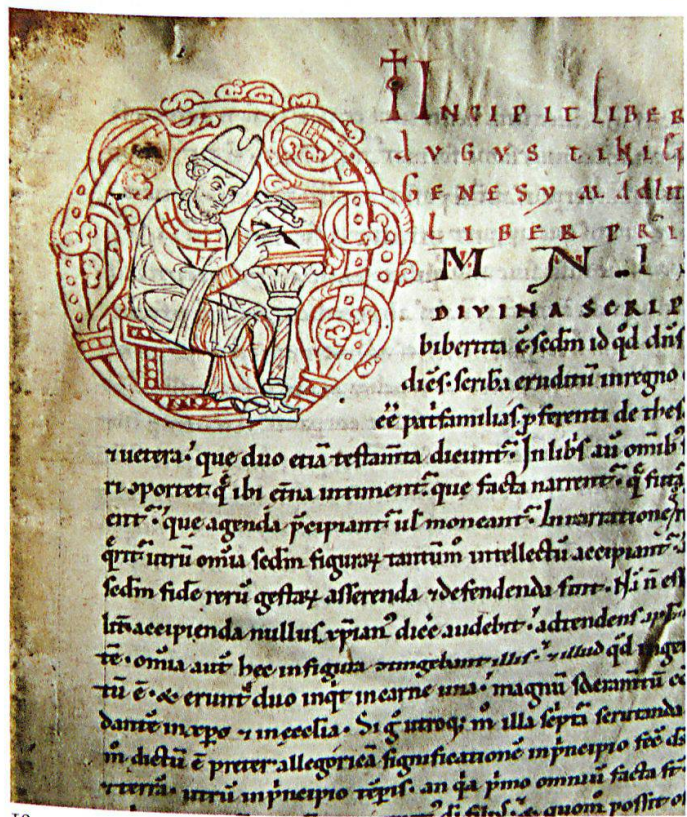 INCIPIT LIBER
AUGUSTINI
GENESY AD
LIBER PRI
MNIS
DIVINA SCRIP
bibertita ē. sedm id qd dn̄s
dies. scriba eruditū in regno
eē patrifamilias pferenti de thes
⁊ uetera. que duo etiā testam̄ta dicunt᷑. In lib̄s au omnib
ri oportet q̄ ibi et̄na intiment᷑. que facta narrent᷑. q̄ futa
ent᷑. que agenda p̄cipiant᷑ ul moneant᷑. In narratione
q̄rit᷑ utrū om̄ia sedm figurarꝝ tantum̄ intellectū accipiant᷑
sedm fidē rerū gestarꝝ asserenda ⁊ defendenda sint. Nā n̄ ess
accipienda nullus xp̄ian᷒ dic̄e audebit. adtendens
tē. om̄ia aut̄ hec in figura illis. ⁊ illud qd inge
tū ē. & erunt duo inqt in carne una. magnū sac̄ram̄tū
dantē in xp̄o ⁊ in eccl̄ia. Si g̊ utroq; m̊ illa sc̄pta scrutanda
m̊ dictū ē preter allegoricā significationē in p̄ncipio fec̄ ds
⁊ terrā. utrū in p̄ncipio tēp̄is. an qa p̄mo omniū facta st̄
& quom̊ possit
10